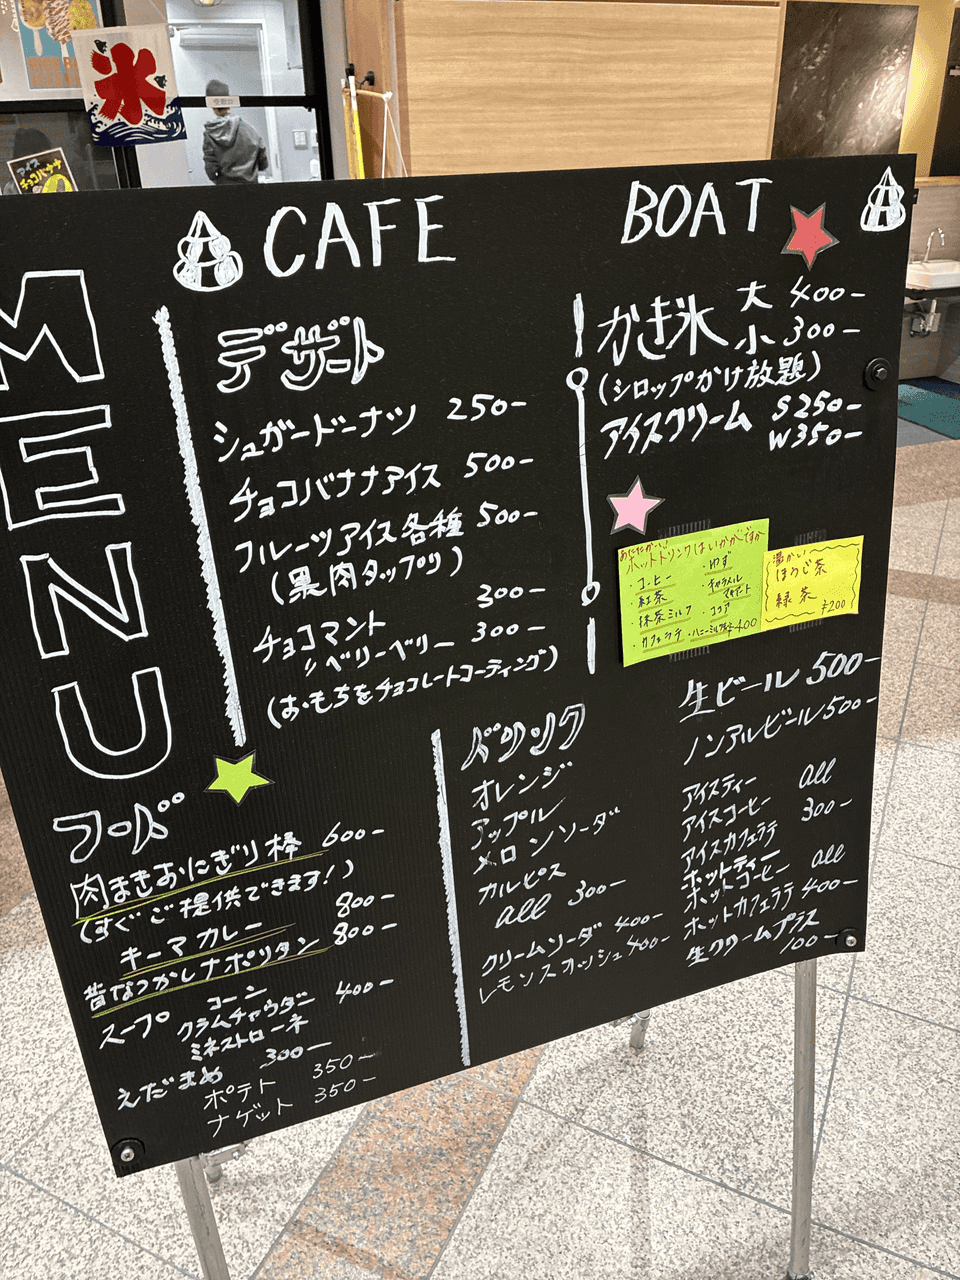 氷
アイス
チョコバナナ
CAFE BOAT
MENU
デザート
シュガードーナツ 250-
チョコバナナアイス 500-
フルーツアイス各種 500-
(果肉タップリ)
チョコマント 300-
〃ベリーベリー 300-
(おもちをチョコレートコーティング)
かき氷 大 400-
小 300-
(シロップかけ放題)
アイスクリーム S250-
W350-
ホットドリンクはいかがですか
・コーヒー ・ゆず
・紅茶 ・キャラメル
・抹茶ミルク ・ココア
・カフェラテ ・ハニーミルク ¥400
温かい
ほうじ茶
緑茶
¥200
フード
肉まきおにぎり棒 600-
(すぐご提供できます!)
キーマカレー 800-
昔なつかしナポリタン 800-
スープ コーン
クラムチャウダー 400-
ミネストローネ
えだまめ 300-
ポテト 350-
ナゲット 350-
ドリンク
オレンジ
アップル
メロンソーダ
カルピス
all 300-
クリームソーダ 400-
レモンスカッシュ 400-
生ビール 500-
ノンアルビール 500-
アイスティー all
アイスコーヒー 300-
アイスカフェラテ
ホットティー all
ホットコーヒー 400-
ホットカフェラテ
生クリームプラス
100-